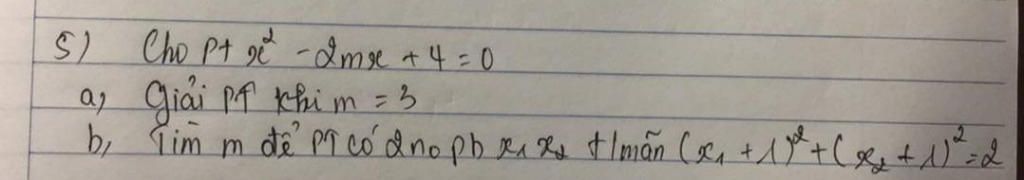 5) Cho pt x² - 2mx + 4 = 0
a, Giải pt khi m = 3
b, Tìm m để PT có 2 no pb x₁ x₂ t/mãn (x₁ + 1)² + (x₂ + 1)² = 2